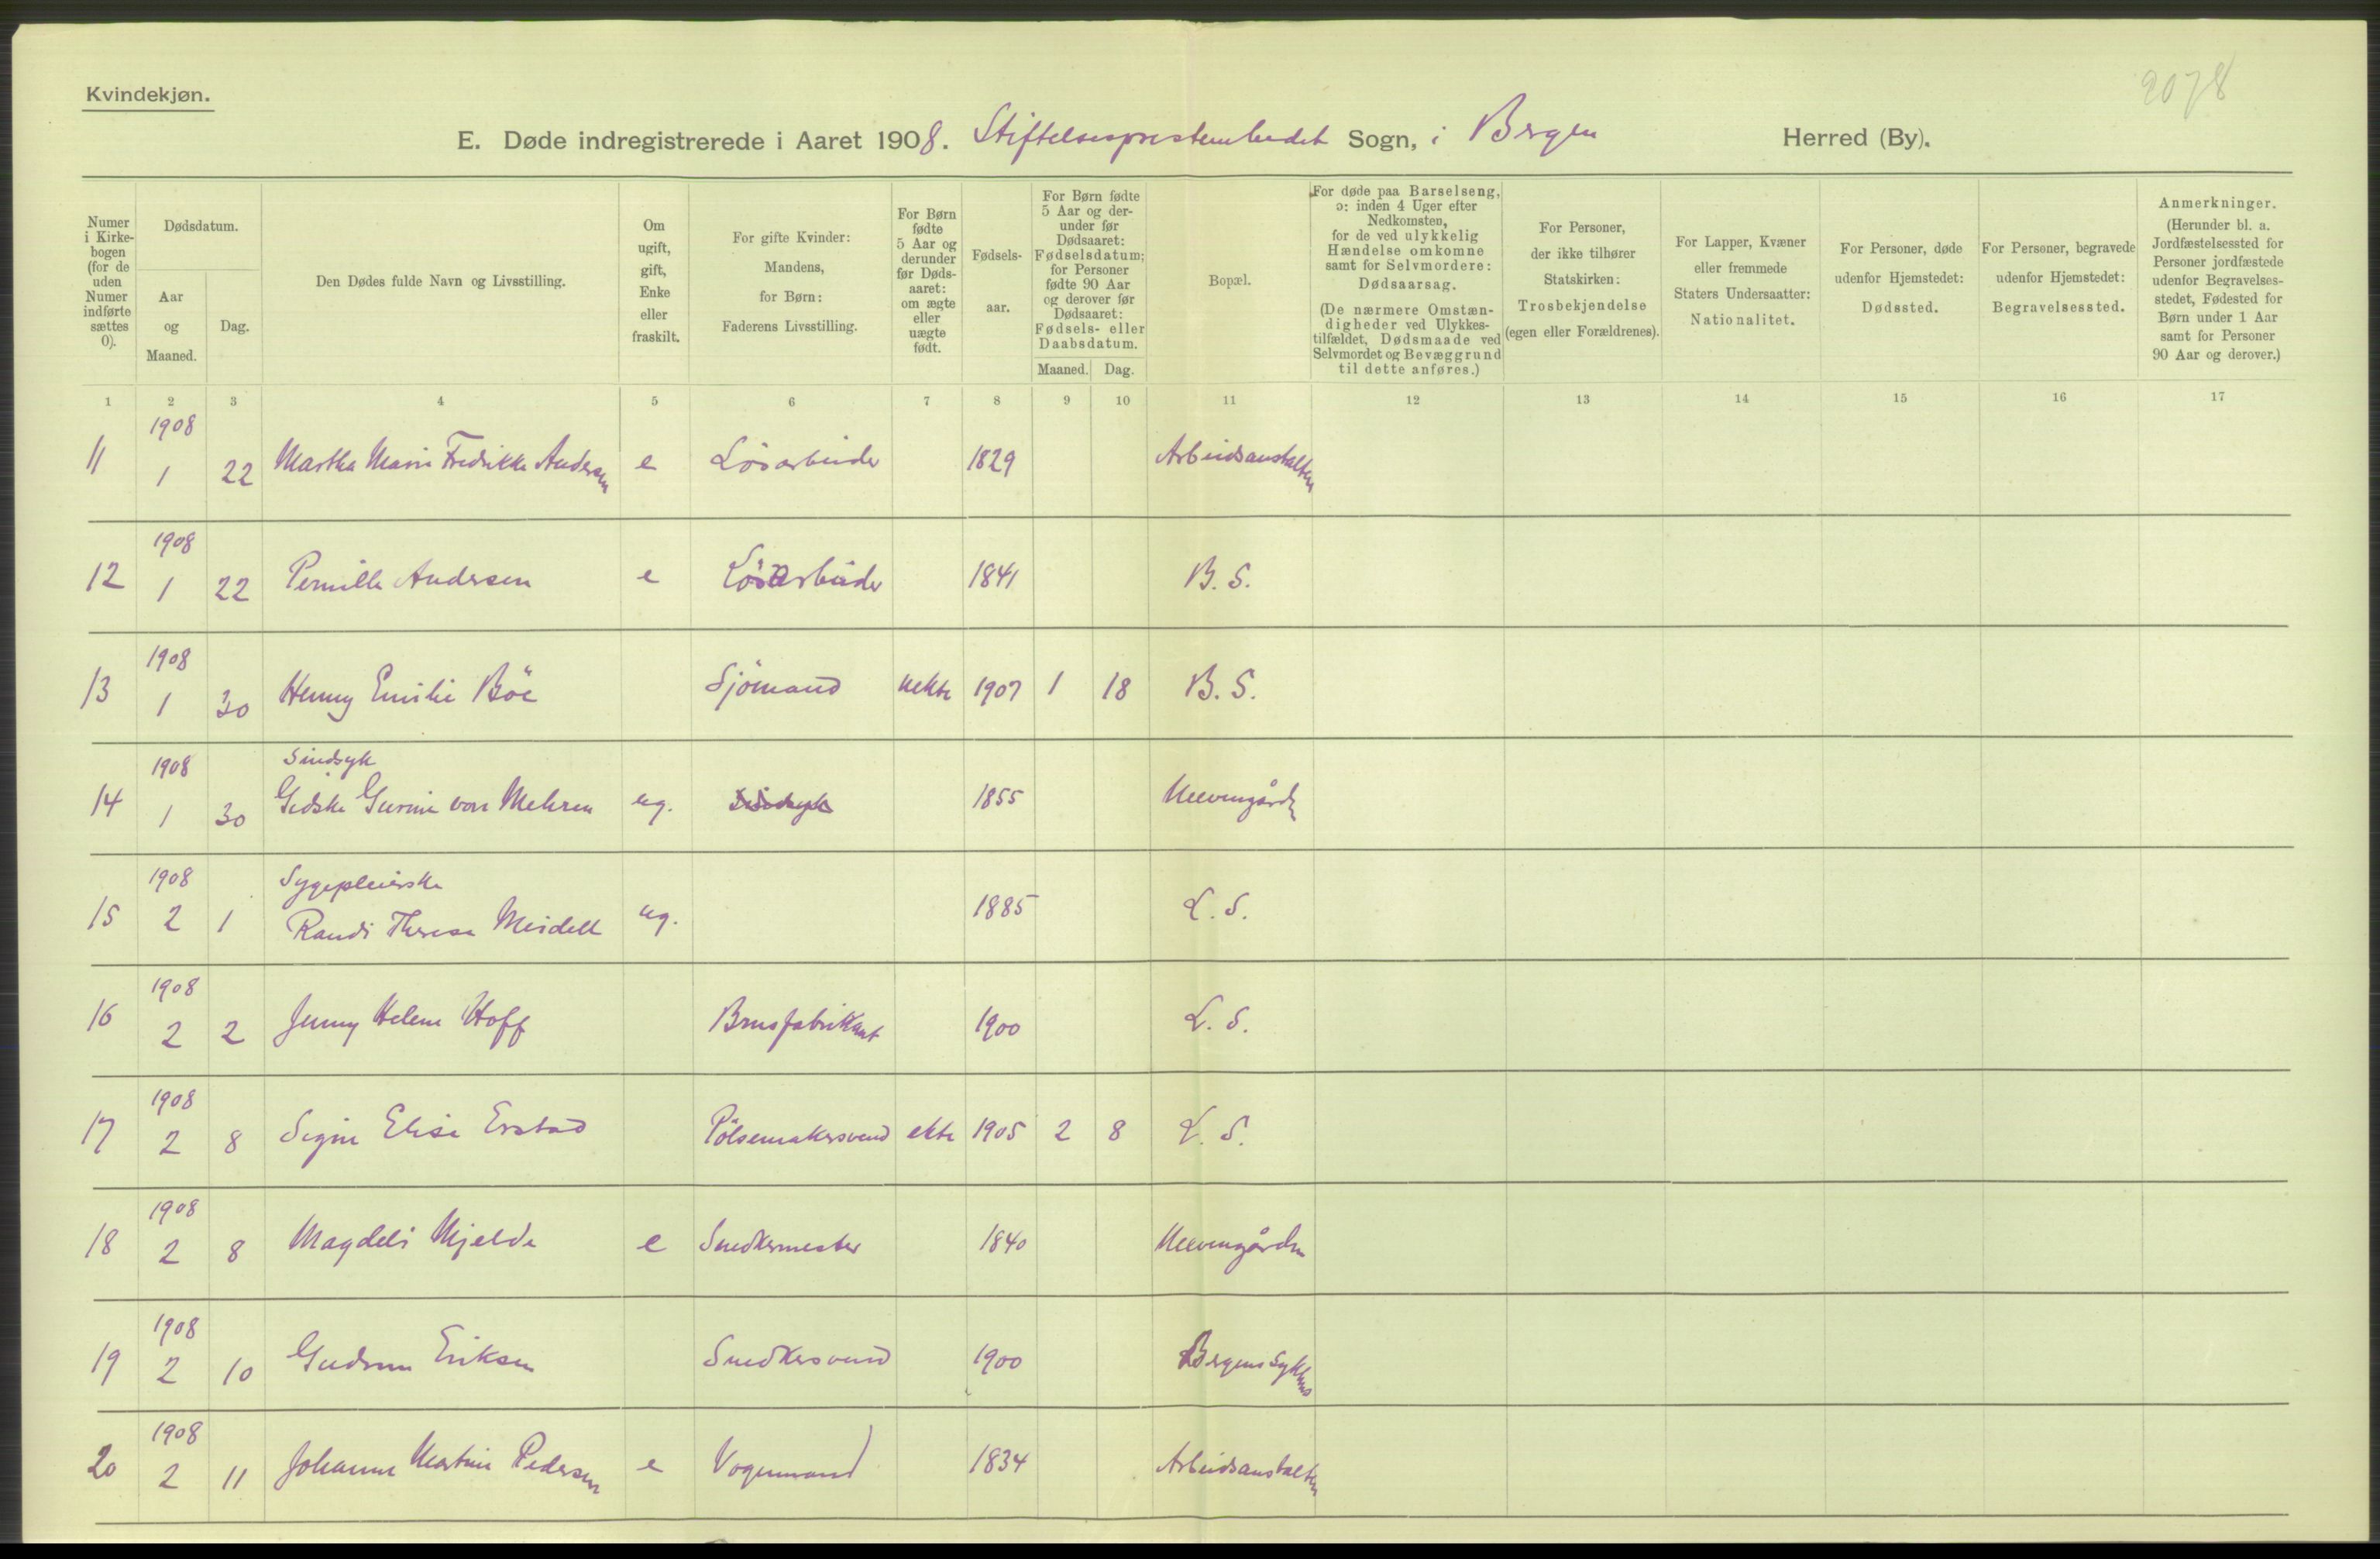 2078
Kvindekjøn.
E. Døde indregistrerede i Aaret 1908. Stiftelsesprestembedet Sogn, i Bergen Herred (By).
Numer i Kirke-bogen (for de uden Numer indførte sættes 0).
Dødsdatum.
Aar og Maaned.
Dag.
Den Dødes fulde Navn og Livsstilling.
Om ugift, gift, Enke eller fraskilt.
For gifte Kvinder: Mandens, for Børn: Faderens Livsstilling.
For Børn fødte 5 Aar og derunder før Døds-aaret: om ægte eller uægte født.
Fødsels-aar.
For Børn fødte 5 Aar og der-under før Dødsaaret: Fødselsdatum; for Personer fødte 90 Aar og derover før Dødsaaret: Fødsels- eller Daabsdatum.
Maaned. Dag.
Bopæl.
For døde paa Barselseng, ɔ: inden 4 Uger efter Nedkomsten, for de ved ulykkelig Hændelse omkomne samt for Selvmordere: Dødsaarsag. (De nærmere Omstæn-digheder ved Ulykkes-tilfældet, Dødsmaade ved Selvmordet og Bevæggrund til dette anføres.)
For Personer, der ikke tilhører Statskirken: Trosbekjendelse (egen eller Forældrenes).
For Lapper, Kvæner eller fremmede Staters Undersaatter: Nationalitet.
For Personer, døde udenfor Hjemstedet: Dødssted.
For Personer, begravede udenfor Hjemstedet: Begravelsessted.
Anmerkninger. (Herunder bl. a. Jordfæstelsessted for Personer jordfæstede udenfor Begravelses-stedet, Fødested for Børn under 1 Aar samt for Personer 90 Aar og derover.)
1 2 3 4 5 6 7 8 9 10 11 12 13 14 15 16 17
1908
11 1 22 Martha Marie Fredrikke Andersen e Løsarbeider 1829 Arbeidsanstalten
1908
12 1 22 Pernille Andersen e Løsarbeider 1841 B. S.
1908
13 1 30 Henny Emilie Böe Sjömand uekte 1907 1 18 B. S.
1908 Sindsyk
14 1 30 Gidske Gurine von Mehren ug. Sindsyk 1855 Neevengården
1908 Sygepleierske
15 2 1 Randi Therese Meidell ug. 1885 L. S.
1908
16 2 2 Jenny Helene Hoff Brusfabrikant 1900 L. S.
1908
17 2 8 Signe Elise Erstad Pölsemakersvend ekte 1905 2 8 L. S.
1908
18 2 8 Magdeli Mjelde e Snedkermester 1840 Neevengården
1908
19 2 10 Gudrun Eriksen Snedkersvend 1900 Bergens Sykehus
1908
20 2 11 Johanne Martine Pedersen e Vognmand 1834 Arbeidsanstalten